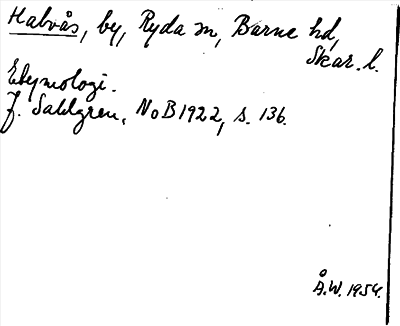 Halvås, by, Ryda sn, Barne hd,
Skar. l.
Etymologi.
J. Sahlgren, NoB 1922, s. 136.
Å.W. 1954.